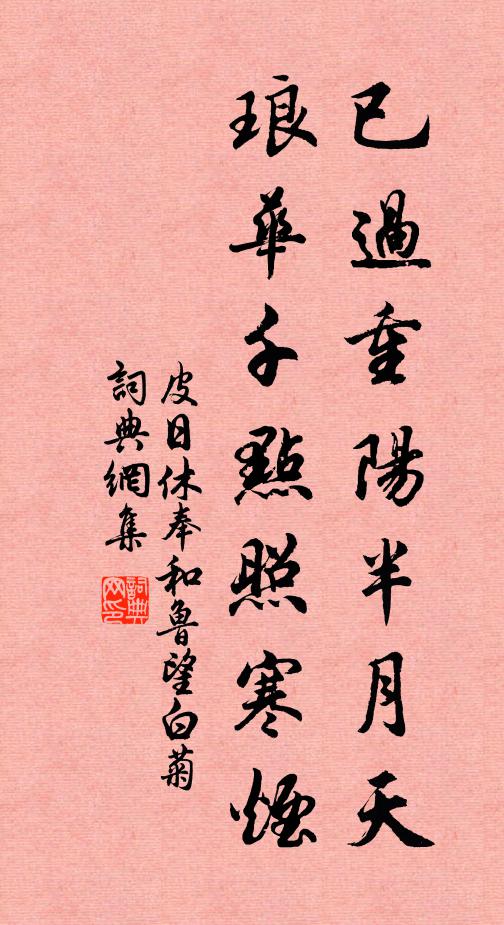 已過重陽半月天
琅華千點照寒煙
皮日休奉和魯望白菊
詞典網集
詞典网印